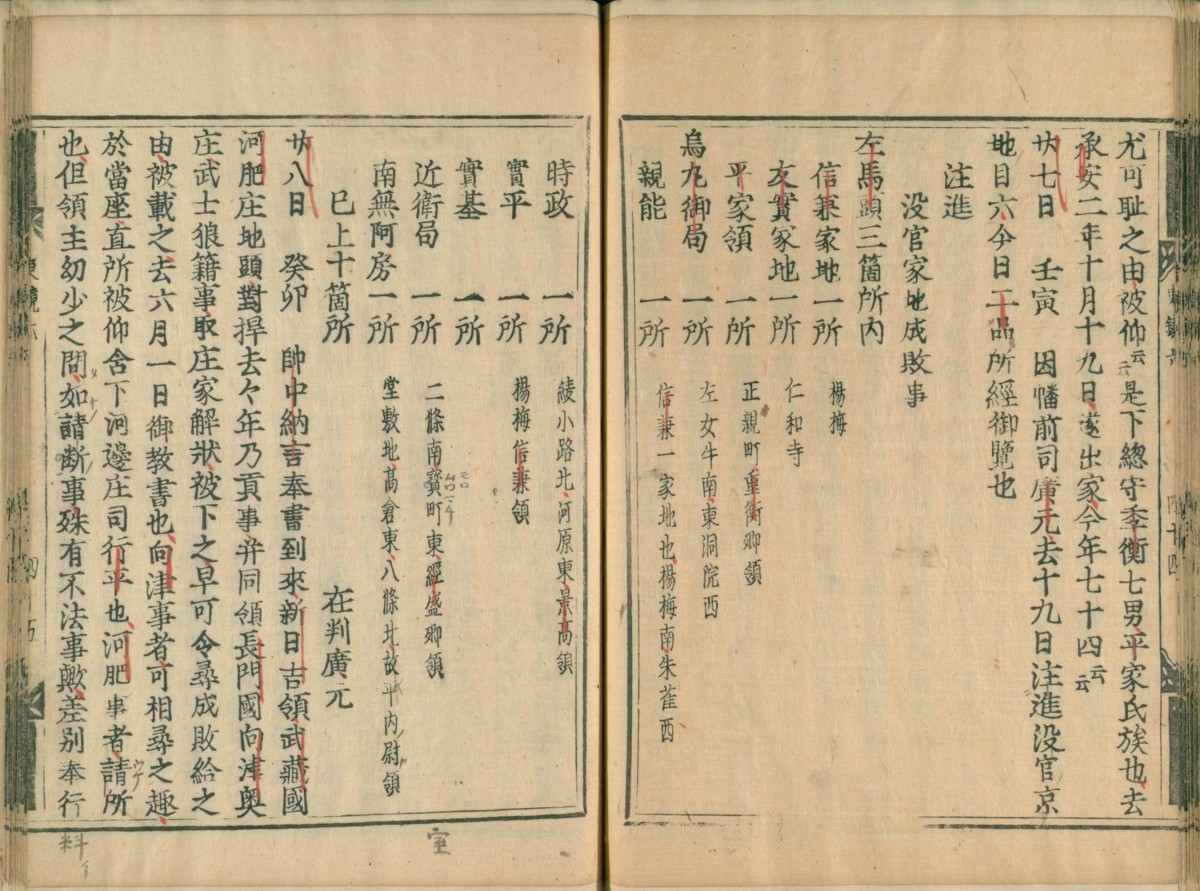 尤可耻之由被仰云云是下總守季衡七男平家氏族也去
承安二年十月十九日遂出家今年七十四云云
廿七日 壬寅 因幡前司廣元去十九日注進没官京
地目六今日二品所經御覽也
注進
没官家地成敗事
左馬頭三箇所内
信兼家地一所 楊梅
友實冢地一所 仁和寺
平家領 一所 正親町重衡卿領
烏丸御局 一所 左女牛南東洞院西
親能 一所 信兼一家地也楊梅南朱雀西
時政 一所 綾小路北河原東景高領
實平 一所 楊梅信兼領
實基 一所
近衛局 一所 二條南寳町東經盛卿領
南無阿房一所 堂敷地髙倉東八條北故平内尉領
巳上十箇所 在判廣元
廿八日 癸卯 帥中納言奉書到來新日吉領武藏國
河肥庄地頭對捍去々年乃貢事并同領長門國向津奥
庄武士狼籍事取庄家解狀被下之早可令尋成敗給之
由被載之去六月一日御教書也向津事者可相尋之趣
於當座直所被仰舍下河邊庄司行平也河肥事者請所
也但領主幼少之間如請断事殊有不法事歟差別奉行
室
料イ